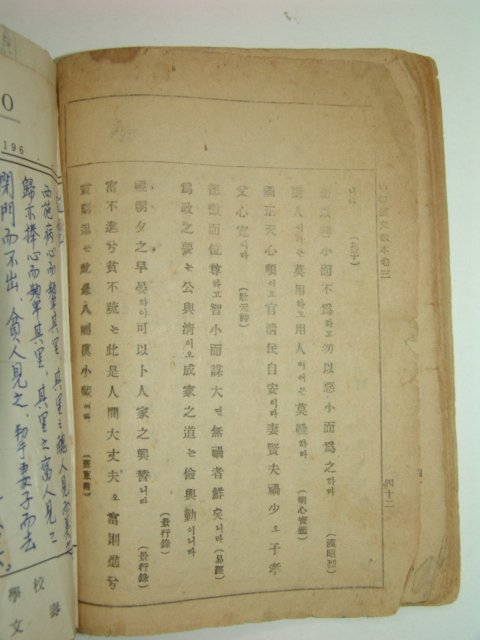 漢文讀本卷三
四十二
니라 (孔子)
勿以善小而不爲하고 勿以惡小而爲之하라 (漢昭烈)
疑人이어든 莫用하고 用人이어든 莫疑하라 (明心寶鑑)
國正天心順이오 官淸民自安이라 妻賢夫禍少오 子孝
父心寬이라 (壯元詩)
德微而位尊하고 智小而謀大면 無禍者鮮矣니라 (易經)
爲政之要는 公與淸이오 成家之道는 儉與勤이니라 (景行錄)
觀朝夕之早晏하야 可以卜人家之興替니라 (景行錄)
富不進兮貧不疎는 此是人間大丈夫오 富則進兮
貧則退는 此是人間眞小輩니라 (蘇東坡)
O
196
西施病心而矉其里, 其里之醜人見而美之
歸亦捧心而矉其里, 其里之富人見之
閉門而不出, 貧人見之, 挈妻子而去
校
學文